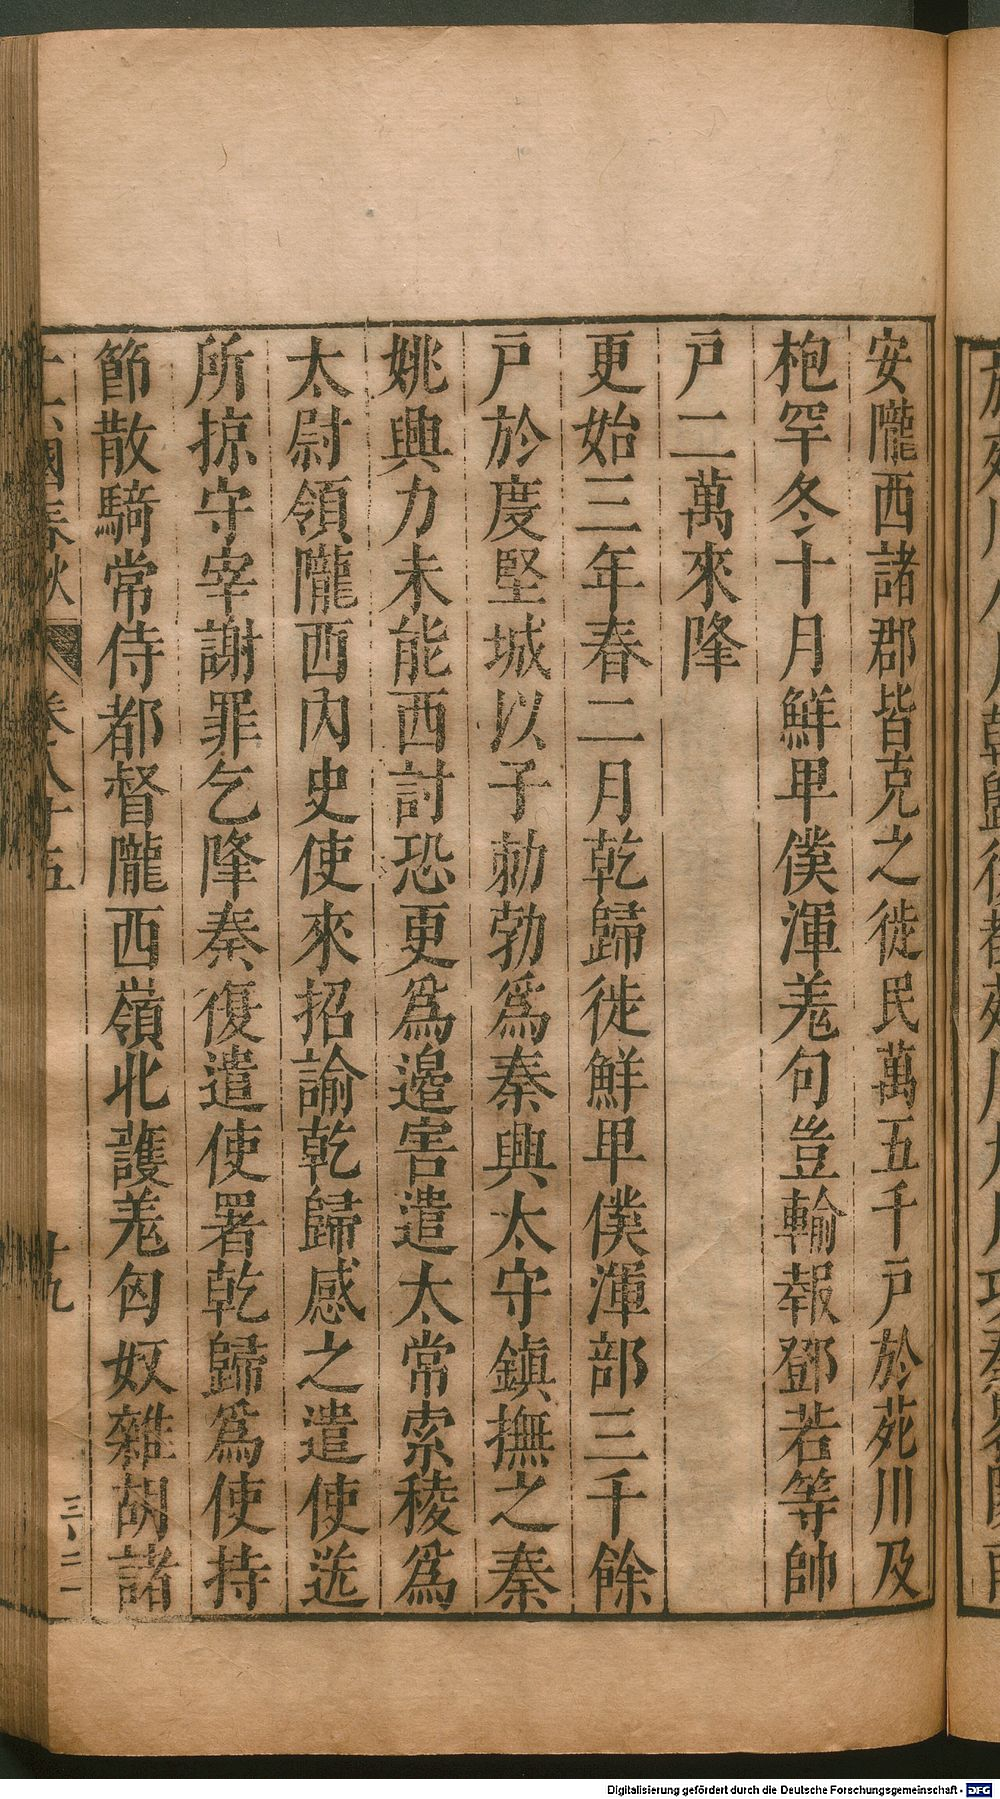 安隴西諸郡皆克之徙民萬五千戸於苑川及
枹罕冬十月鮮卑僕渾羗句豈輸報鄧若等帥
戸二萬來降
更始三年春二月乾歸徙鮮卑僕渾部三千餘
戸於度堅城以子勑勃爲秦興太守鎭撫之秦
姚興力未能西討恐更爲邊害遣太常索稜爲
太尉領隴西內史使來招諭乾歸感之遣使送
所掠守宰謝罪乞降秦復遣使署乾歸爲使持
節散騎常侍都督隴西嶺北護羗匈奴雜胡諸
十六國春秋 卷八十五 十九
三、二一
Digitalisierung gefördert durch die Deutsche Forschungsgemeinschaft - DFG